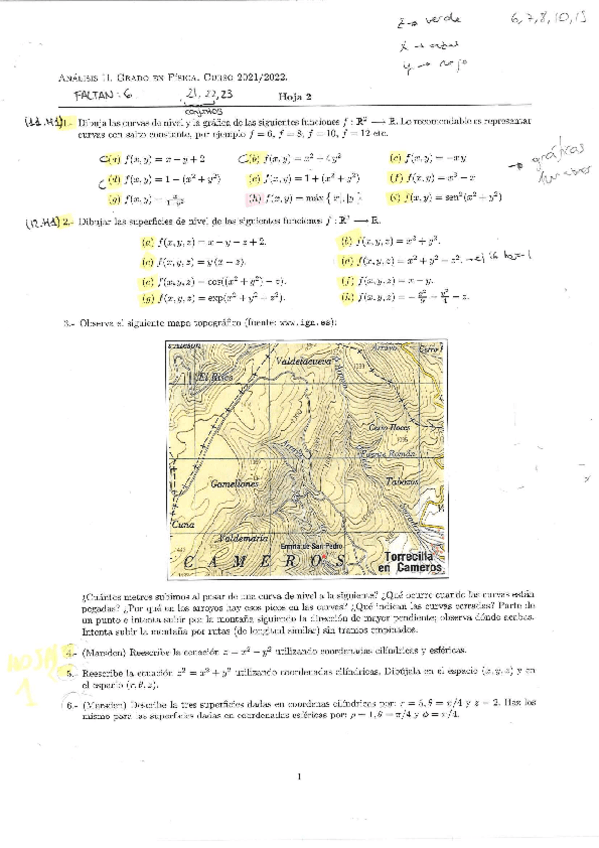 z → verde
6,7,8,10,15
x → azas
y → rojo
ANÁLISIS II. GRADO EN FÍSICA. CURSO 2021/2022.
FALTAN: 6
21,22,23
conjuntos
Hoja 2
(11.H1) 1.- Dibuja las curvas de nivel y la gráfica de las siguientes funciones f : R² → R. Lo recomendable es representar
curvas con salto constante, por ejemplo f = 6, f = 8, f = 10, f = 12 etc.
(a) f(x, y) = x − y + 2 (b) f(x, y) = x² − 4y² (c) f(x, y) = −xy
→ gráficas
(d) f(x, y) = 1 − (x² + y²) (e) f(x, y) = 1 + (x² + y²) (f) f(x, y) = x² − x
(g) f(x, y) = (h) f(x, y) = máx{|x|, |y|} (i) f(x, y) = sen²(x² + y²)
(12.H1) 2.- Dibujar las superficies de nivel de las siguientes funciones f : R³ → R.
(a) f(x, y, z) = x − y − z + 2. (b) f(x, y, z) = x² + y².
(c) f(x, y, z) = y(x − z). (d) f(x, y, z) = x² + y² − z².
(e) f(x, y, z) = cos((x² + y²) − z). (f) f(x, y, z) = x − y.
(g) f(x, y, z) = exp(x² + y² − z²). (h)
3.- Observa el siguiente mapa topográfico (fuente: www.ign.es):
Valdeladueva
El Rizos
Cerro Roces
Fuente Román
Gamellones
Tabazos
Cuna
Valdemaría
Ermita de San Pedro
CAMEROS
Torrecilla
en Cameros
¿Cuántos metros subimos al pasar de una curva de nivel a la siguiente? ¿Qué ocurre cuando las curvas están
pegadas? ¿Por qué en los arroyos hay esos picos en las curvas? ¿Qué indican las curvas cerradas? Parte de
un punto e intenta subir por la montaña siguiendo la dirección de mayor pendiente; observa dónde acabas.
Intenta subir la montaña por rutas (de longitud similar) sin tramos empinados.
HOJA
1
4.- (Marsden) Reescribe la ecuación z = x² − y² utilizando coordenadas cilíndricas y esféricas.
5.- Reescribe la ecuación z² = x² + y² utilizando coordenadas cilíndricas. Dibújala en el espacio (x, y, z) y en
el espacio (r, θ, z).
6.- (Marsden) Describe la tres superficies dadas en coordenas cilíndricas por: r = 5, θ = π/4 y z = 2. Haz lo
mismo para las superficies dadas en coordenadas esféricas por: ρ = 1, θ = π/4 y φ = π/4.
1